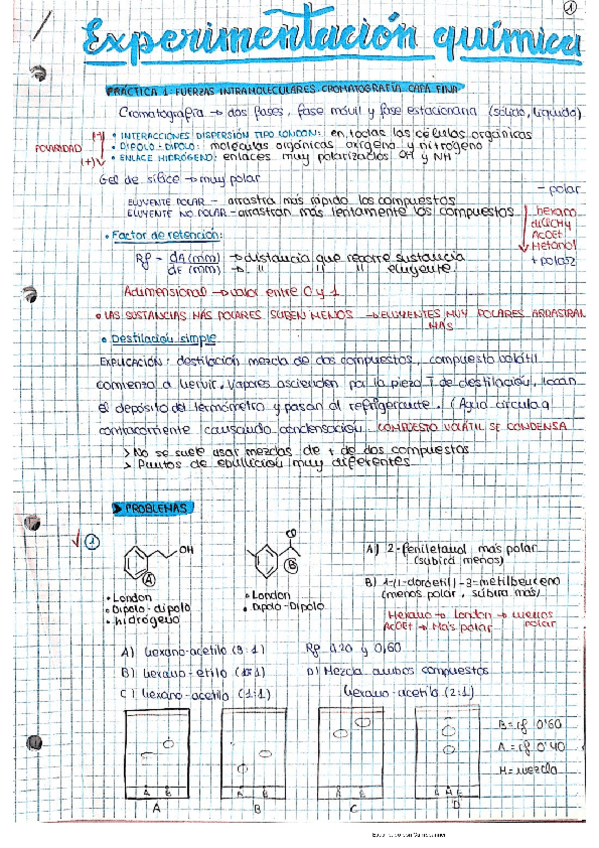 1
Experimentación química
PRÁCTICA 1: FUERZAS INTRAMOLECULARES. CROMATOGRAFÍA CAPA FINA
Cromatografía → dos fases, fase móvil y fase estacionaria (sólido, líquido)
(-) • INTERACCIONES DISPERSIÓN TIPO LONDON: en todas las células orgánicas
POLARIDAD • DIPOLO-DIPOLO: moléculas orgánicas oxígeno y nitrógeno
(+) • ENLACE HIDRÓGENO: enlaces muy polarizados OH y NH
Gel de sílice → muy polar
- polar
ELUYENTE POLAR - arrastra más rápido los compuestos
ELUYENTE NO POLAR - arrastran más lentamente los compuestos
hexano
AcOEt
Metanol
+ polar
• Factor de retención:
Rf - dA (mm) → distancia que recorre sustancia
dE (mm) → " " " eluyente.
Adimensional → valor entre 0 y 1
• LAS SUSTANCIAS MÁS POLARES SUBEN MENOS → ELUYENTES MUY POLARES ARRASTRAN
MÁS
• Destilación simple
EXPLICACIÓN: destilación mezcla de dos compuestos, compuesto volátil
comienza a hervir. Vapores ascienden por la pieza T de destilación, tocan
el depósito del termómetro y pasan al refrigerante. (Agua circula a
contracorriente causando condensación. COMPUESTO VOLÁTIL SE CONDENSA
> No se suele usar mezclas de + de dos compuestos
> Puntos de ebullición muy diferentes
> PROBLEMAS
1
OH
A
Cl
B
A) 2-feniletanol más polar
(subirá menos)
B) 1-(1-cloroetil)-3-metilbenceno
(menos polar, subirá más)
• London
• Dipolo-dipolo
• hidrógeno
• London
• Dipolo-Dipolo
Hexano → London → menos
polar
AcOEt → Más polar
A) hexano-acetilo (9:1) Rf 0.20 y 0,60
B) hexano-etilo D) Mezcla ambos compuestos
C) hexano-acetilo (1:1) hexano-acetilo (2:1)
B = rf 0'60
A = rf 0'40
M = mezcla
A B
A B
A B
A B
A
B
C
D